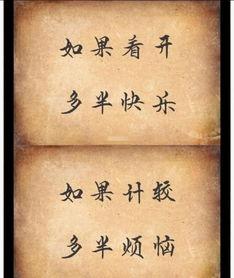 如果看开
多半快乐
如果计较
多半烦恼